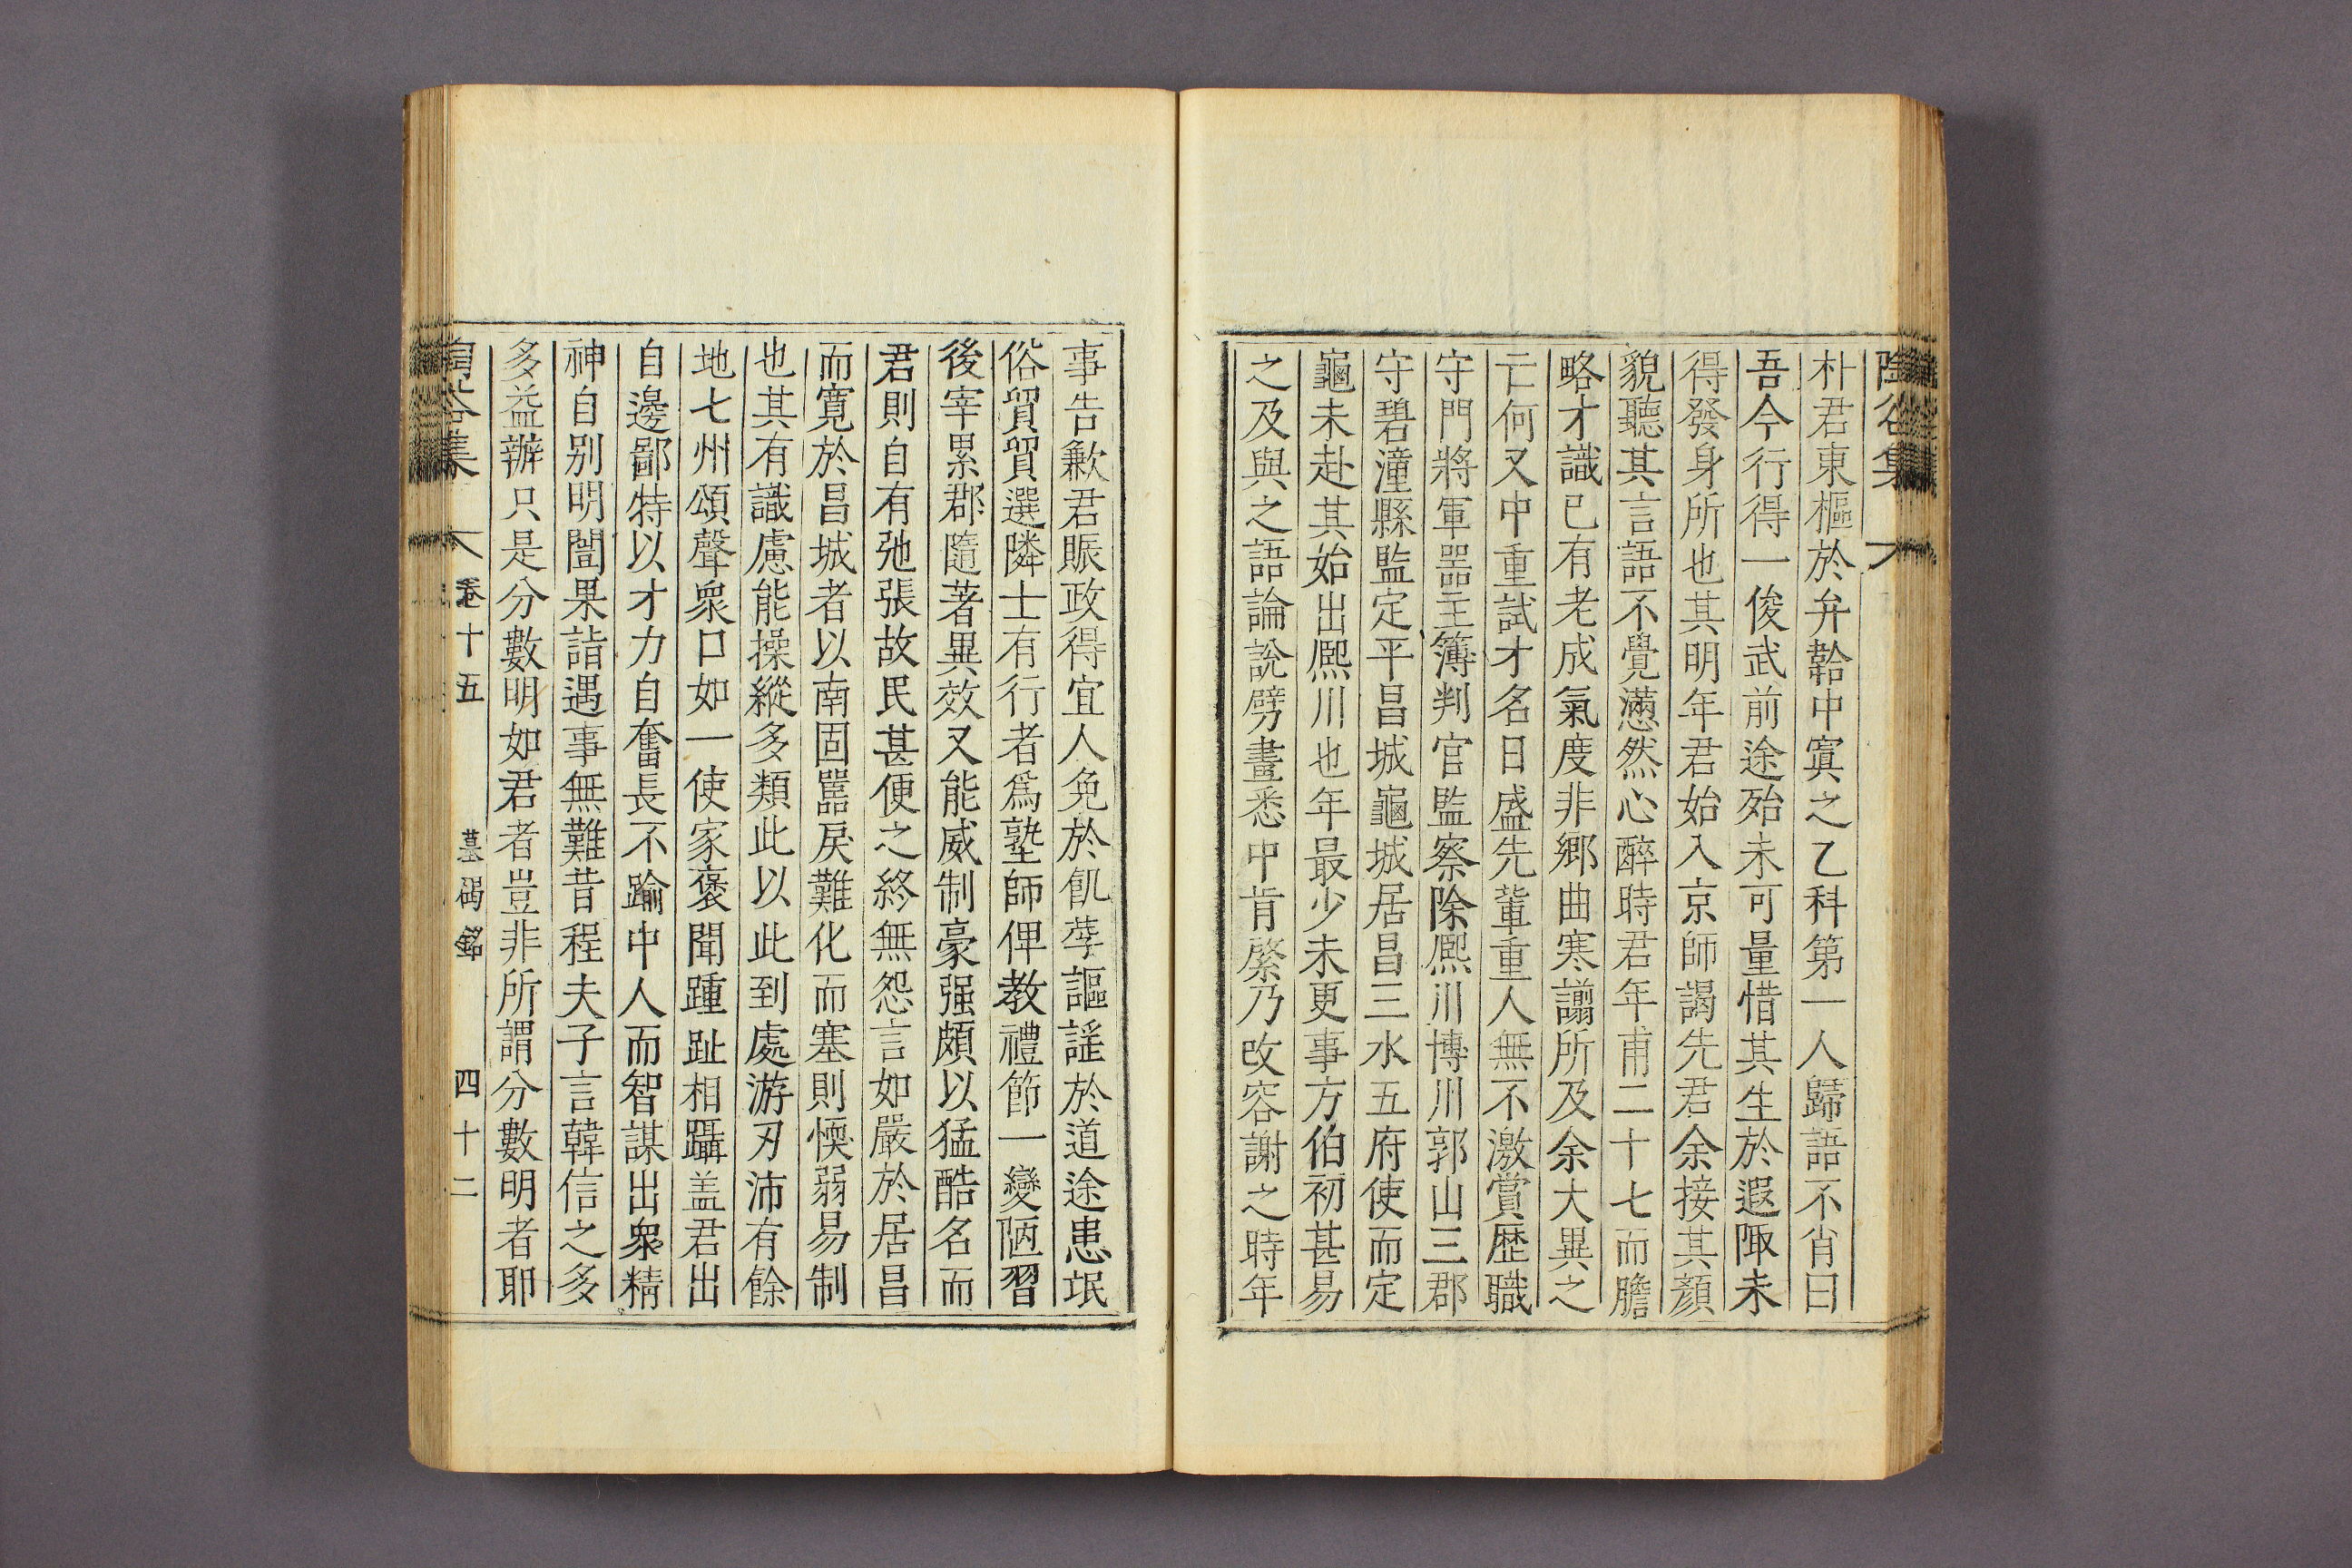 陶谷集
朴君東樞於弁韐中寘之乙科第一人歸語不肖曰
吾今行得一俊武前途殆未可量惜其生於遐陬未
得發身所也其明年君始入京師謁先君余接其顏
貌聽其言語不覺懣然心醉時君年甫二十七而膽
略才識已有老成氣度非鄉曲寒謭所及余大異之
亡何又中重試才名日盛先軰重人無不激賞歷職
守門將軍器主簿判官監察除熈川博川郭山三郡
守碧潼縣監定平昌城龜城居昌三水五府使而定
龜未赴其始出熈川也年最少未更事方伯初甚易
之及與之語論說劈畫悉中肯綮乃改容謝之時年
事告歉君賑政得宜人免於飢莩謳謡於道途患氓
俗貿貿選隣士有行者爲塾師俾教禮節一變陋習
後宰累郡隨著異效又能威制豪强頗以猛酷名而
君則自有弛張故民甚便之終無怨言如嚴於居昌
而寛於昌城者以南固嚚戾難化而塞則愞弱易制
也其有識慮能操縱多類此以此到處游刃沛有餘
地七州頌聲衆口如一使家褒聞踵趾相躡盖君出
自邊鄙特以才力自奮長不踰中人而智謀出衆精
神自别明闓果詣遇事無難昔程夫子言韓信之多
多益辦只是分數明如君者豈非所謂分數明者耶
陶谷集 卷十五 墓碣銘 四十二